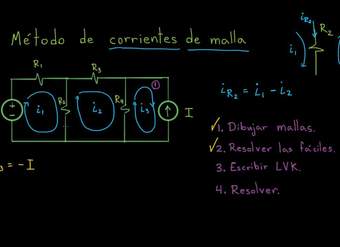 Método de corrientes de malla
i_R₂
R₂
i₁
R₁
R₃
R₂
R₄
i₁
i₂
i₃
①
I
i_R₂ = i₁ - i₂
√1. Dibujar mallas.
√2. Resolver las fáciles.
3. Escribir LVK.
4. Resolver.
₃ = -I